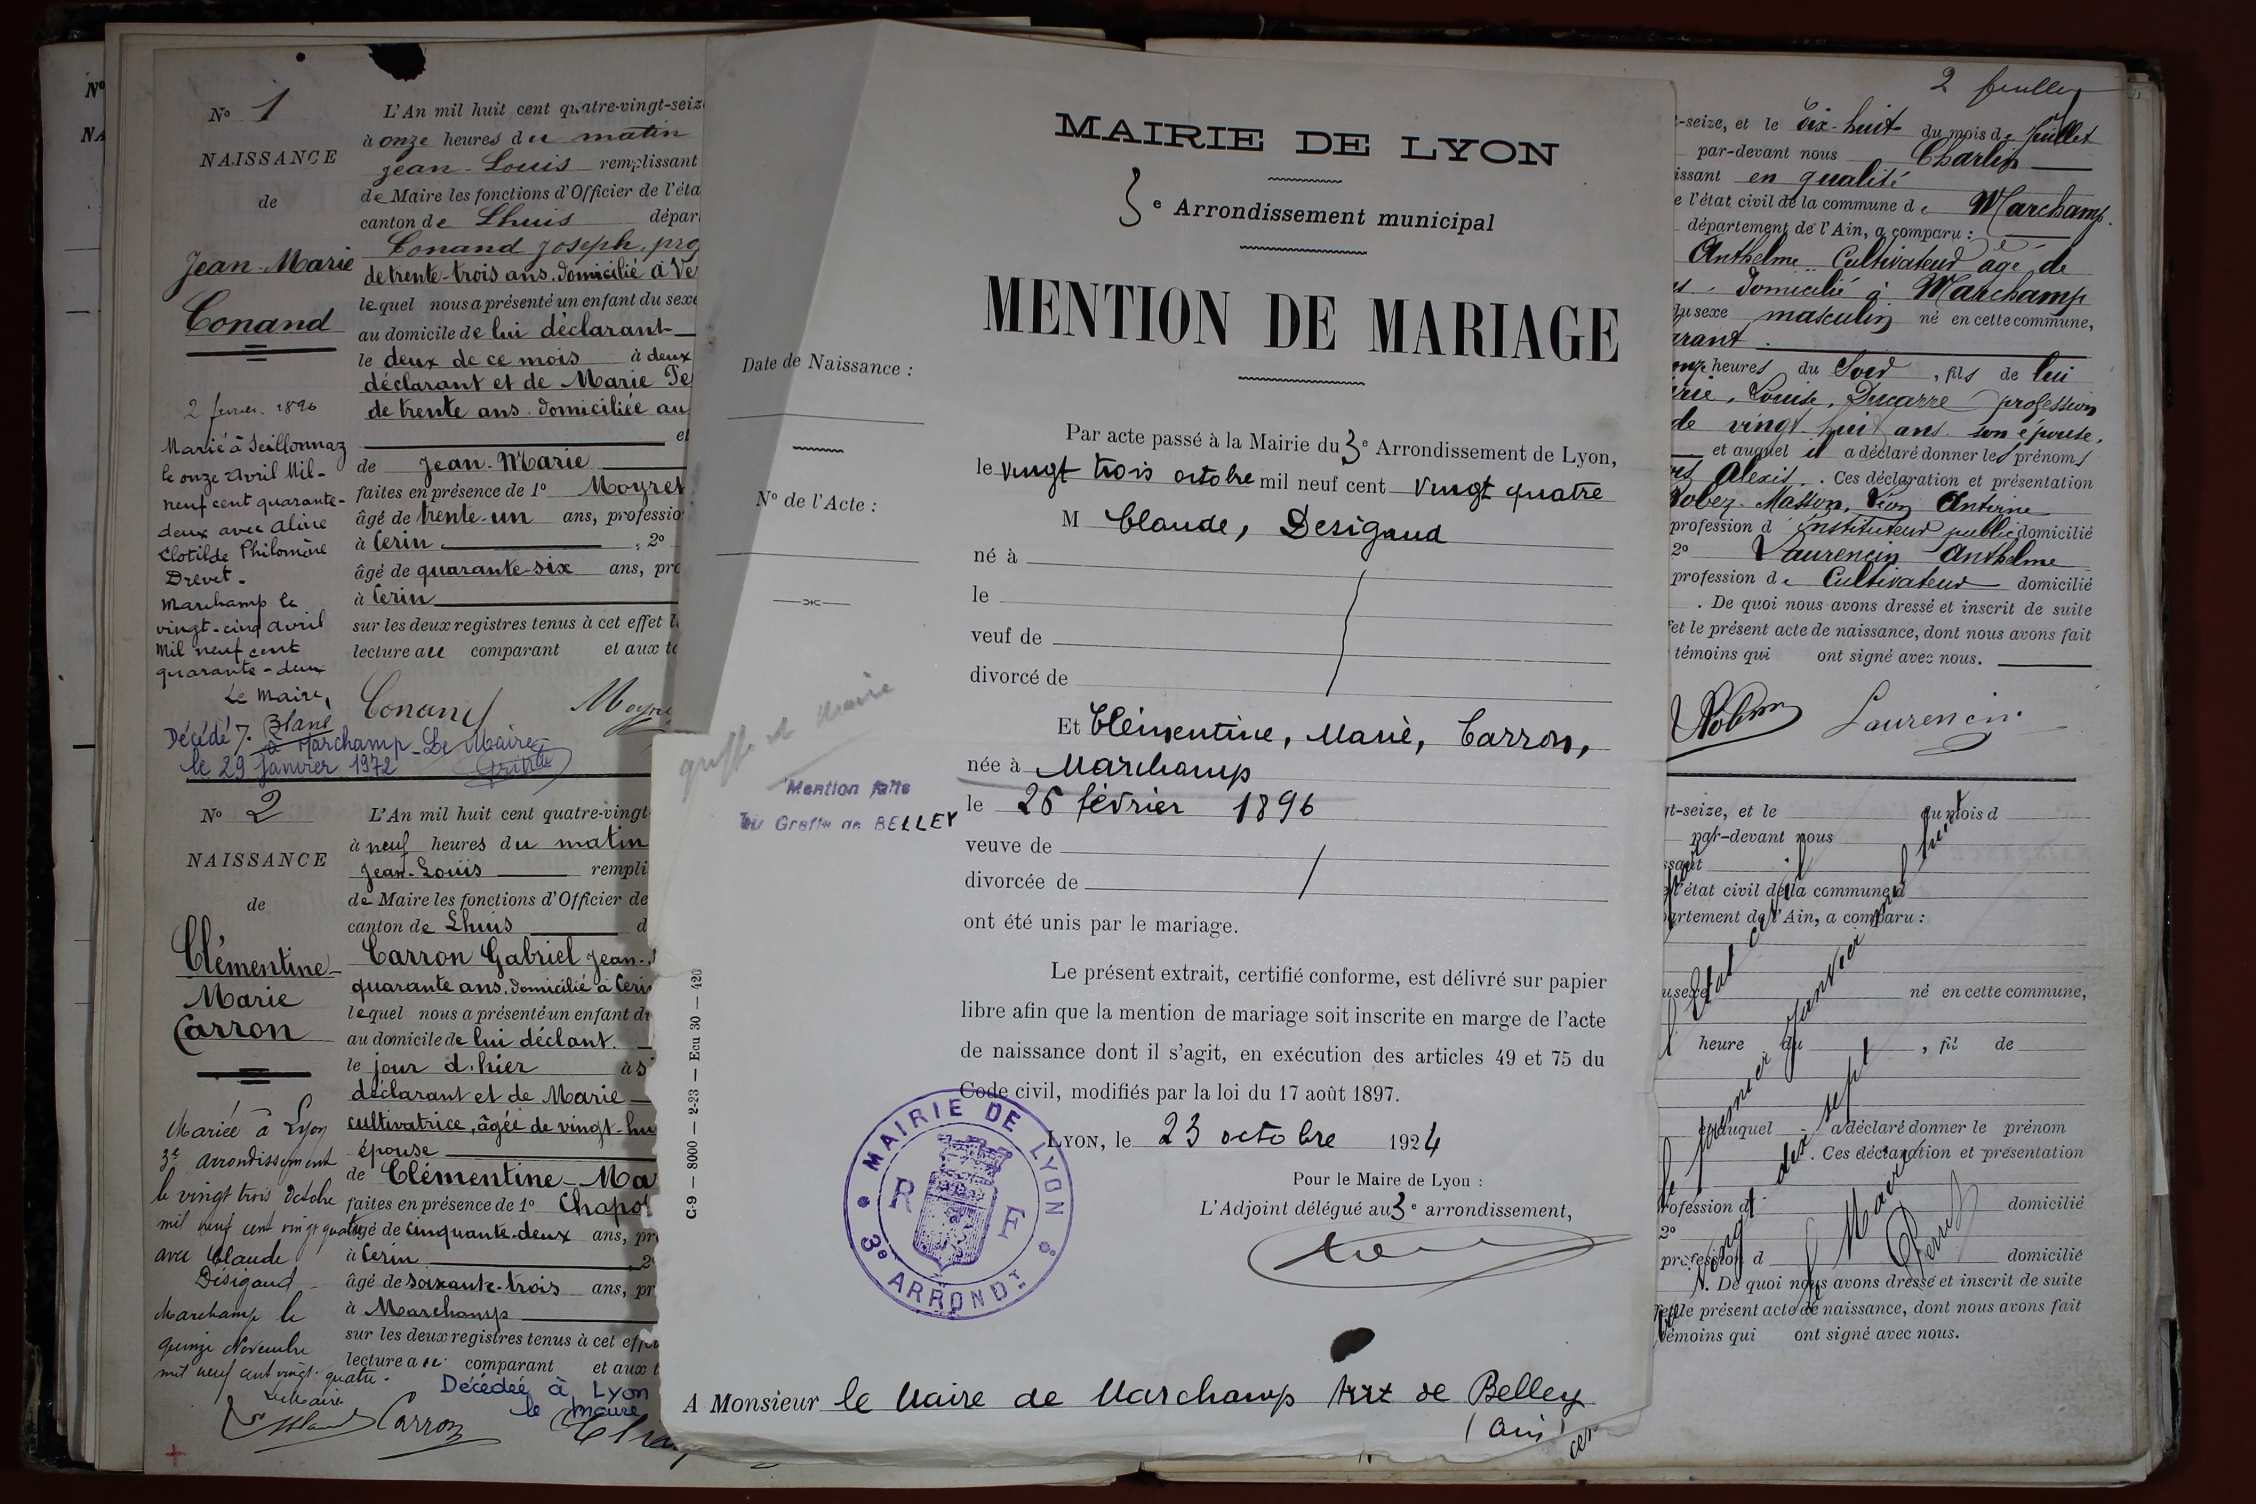 N° 1
NAISSANCE
de
Jean-Marie
Conand
2 février 1896
Marié à Seillonnaz
le onze Avril Mil-
neuf cent quarante-
deux avec Aline
Clotilde Philomène
Drevet.
Marchamp le
vingt-cinq avril
Mil neuf cent
quarante-deux
Le Maire,
Blanc
Décédé
à Marchamp. Le Maire
le 29 janvier 1972
L'An mil huit cent quatre-vingt-seiz
à onze heures du matin
Jean-Louis remplissant
de Maire les fonctions d'Officier de l'éta
canton de Lhuis dépar
Conand Joseph, pro
de trente-trois ans. domicilié à Ve
lequel nous a présenté un enfant du sexe
au domicile de lui déclarant
le deux de ce mois à deux
déclarant et de Marie
de trente ans. domiciliée au
et
de Jean-Marie
faites en présence de 1° Moyret
âgé de trente-un ans, professio
à Cerin , 2°
âgé de quarante-six ans, pro
à Cerin
sur les deux registres tenus à cet effet
lecture au comparant et aux té
Conand
N° 2
NAISSANCE
de
Clémentine-
Marie
Carron
Mariée à Lyon
3e arrondissement
le vingt trois octobre
mil neuf cent vingt quatre
avec Claude
Désigaud
Marchamp le
quinze Novembre
mil neuf cent vingt-quatre.
Le Maire
Carron
L'An mil huit cent quatre-vingt
à neuf heures du matin
Jean-Louis rempli
de Maire les fonctions d'Officier de
canton de Lhuis d
Carron Gabriel Jean-
quarante ans. domicilié à Ceri
lequel nous a présenté un enfant d
au domicile de lui déclant.
le jour d'hier à
déclarant et de Marie
cultivatrice, âgée de vingt-hu
épouse
de Clémentine-Ma
faites en présence de 1° Chapo
âgé de cinquante-deux ans, pr
à Cerin 2
âgé de soixante-trois ans, pr
à Marchamp
sur les deux registres tenus à cet eff
lecture a comparant et aux t
Décédée à Lyon
le maire
MAIRIE DE LYON
3e Arrondissement municipal
MENTION DE MARIAGE
Date de Naissance :
N° de l'Acte :
greffe et Mairie
Mention faite
au Greffe de BELLEY
C-9 — 8000 — 2-23 — Ecu 30 — 420
Par acte passé à la Mairie du 3e Arrondissement de Lyon,
le vingt trois octobre mil neuf cent vingt quatre
M Claude, Desigaud
né à
le
veuf de
divorcé de
Et Clémentine, Marie, Carron,
née à Marchamp
le 26 février 1896
veuve de
divorcée de
ont été unis par le mariage.
Le présent extrait, certifié conforme, est délivré sur papier
libre afin que la mention de mariage soit inscrite en marge de l'acte
de naissance dont il s'agit, en exécution des articles 49 et 75 du
Code civil, modifiés par la loi du 17 août 1897.
LYON, le 23 octobre 1924
Pour le Maire de Lyon :
L'Adjoint délégué au 3e arrondissement,
MAIRIE DE LYON
R F
3e ARRONDT
A Monsieur le Maire de Marchamp Arrt de Belley
(Ain)
2 feuillet
-seize, et le dix-huit du mois de Juillet
par-devant nous Charlin
issant en qualité
e l'état civil de la commune de Marchamp.
département de l'Ain, a comparu :
Anthelme Cultivateur âgé de
domicilié à Marchamp
du sexe masculin né en cette commune,
arant.
onze heures du Soir , fils de lui
rie, Louise, Ducarre profession
de vingt-huit ans son épouse.
et auquel il a déclaré donner les prénoms
Alexis. . Ces déclaration et présentation
Masson, Léon Antoine
profession d' instituteur public domicilié
2° Laurencin Anthelme
profession de Cultivateur domicilié
. De quoi nous avons dressé et inscrit de suite
et le présent acte de naissance, dont nous avons fait
témoins qui ont signé avec nous.
Laurencin
t-seize, et le du mois d
par-devant nous
ssant
l'état civil de la commune d
artement de l'Ain, a comparu :
u sexe né en cette commune,
heure du , fil de
et auquel a déclaré donner le prénom
. Ces déclaration et présentation
profession d domicilié
2°
profession d domicilié
. De quoi nous avons dressé et inscrit de suite
le présent acte de naissance, dont nous avons fait
témoins qui ont signé avec nous.